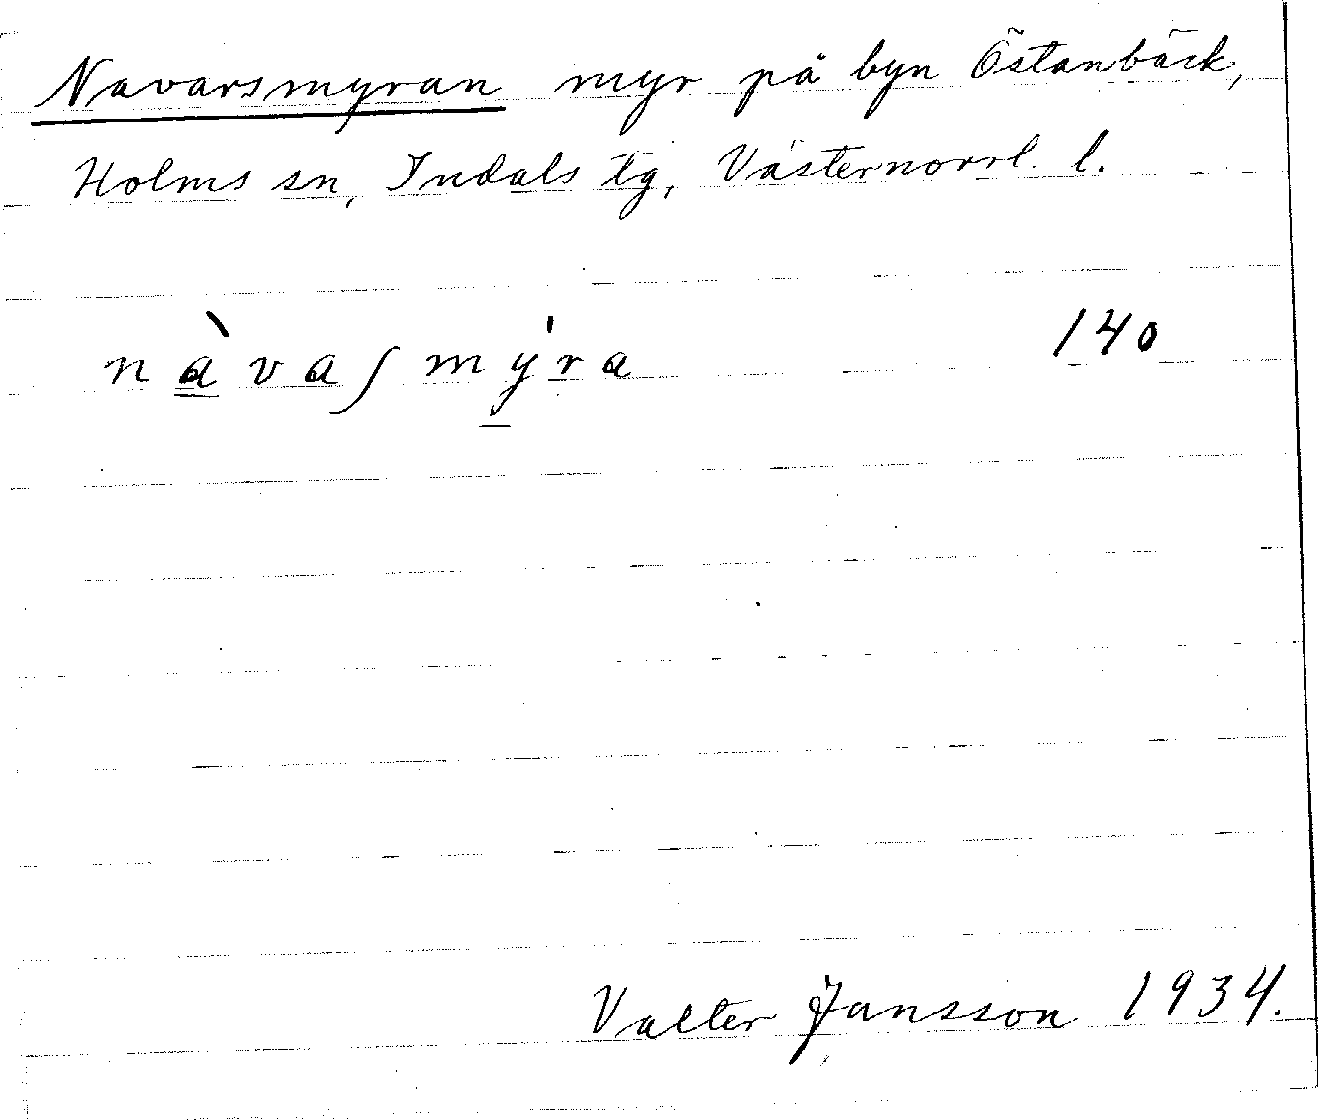 Navarsmyran myr på byn Östanbäck,
Holms sn, Indals tg, Västernorrl. l.
nàvaʃmy̍ra 140
Valter Jansson 1934.